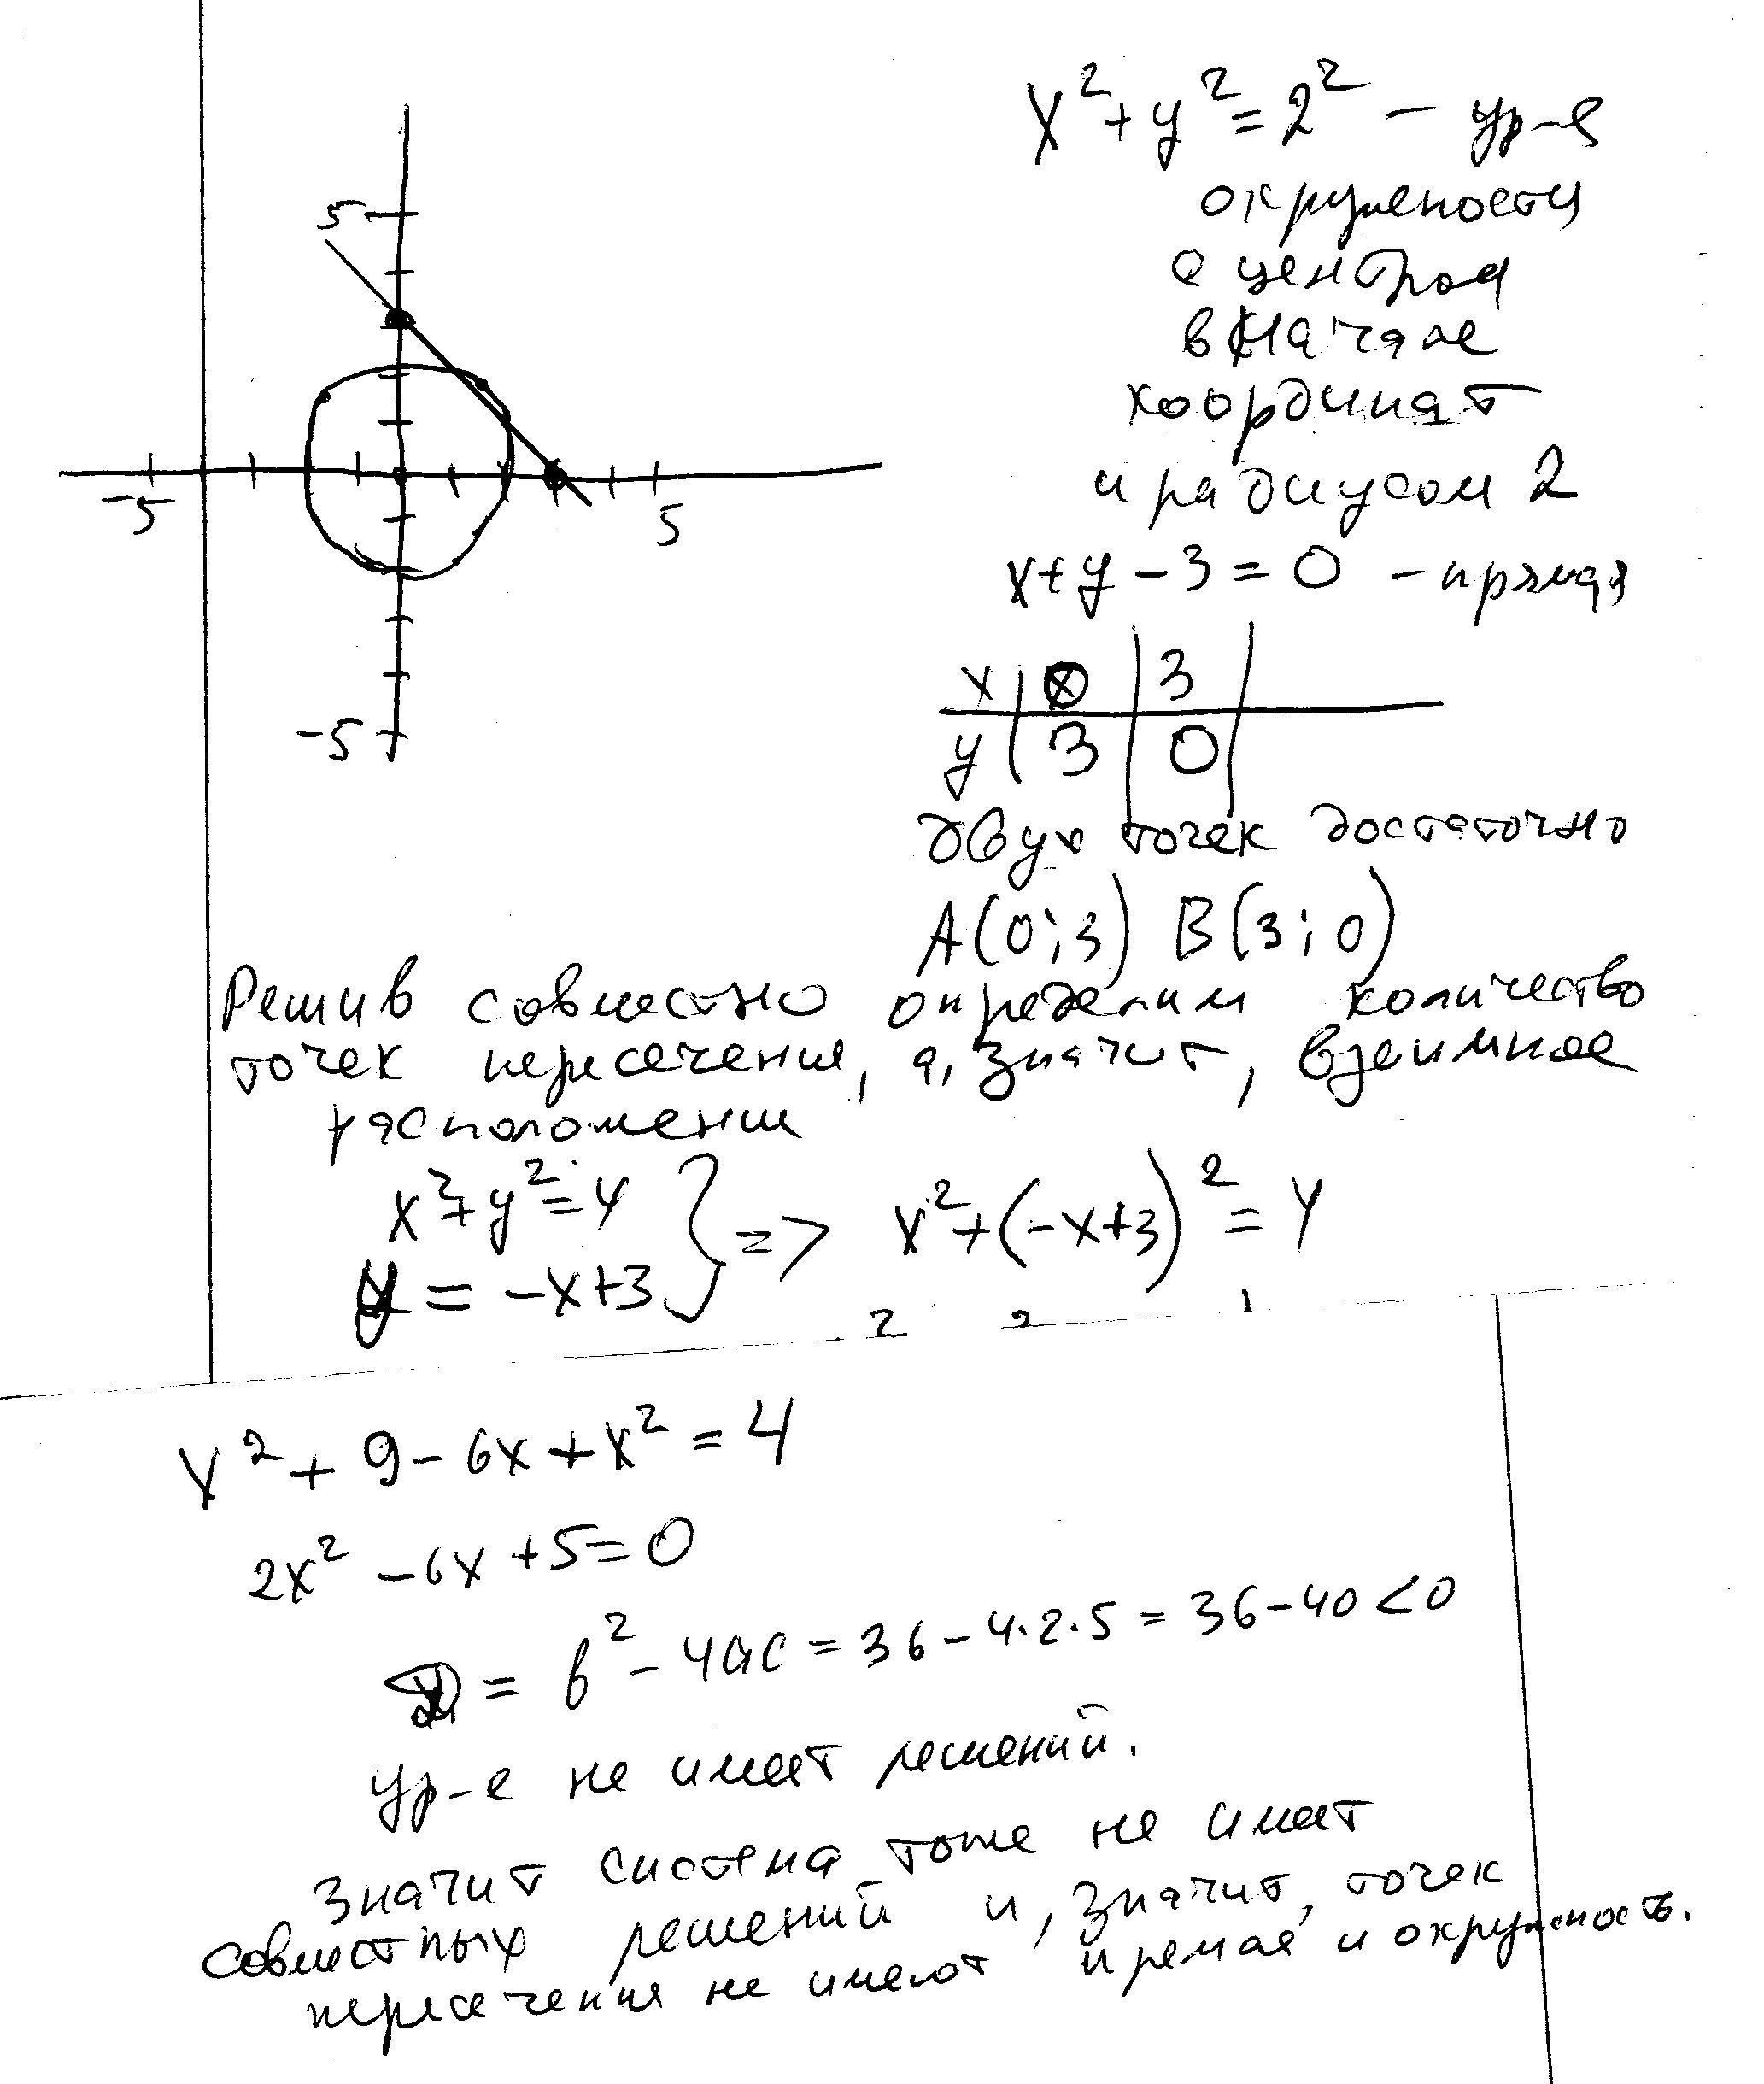 5
-5
5
-5
x² + y² = 2² – ур-е
окружности
с центром
в начале
координат
и радиусом 2
x + y – 3 = 0 – прямая
x | 0 | 3 |
y | 3 | 0 |
двух точек достаточно
A(0;3) B(3;0)
Решив совместно определим количество
точек пересечения, а, значит, взаимное
расположении
x² + y² = 4
y = -x+3 } => x² + (-x+3)² = 4
x² + 9 - 6x + x² = 4
2x² - 6x + 5 = 0
D = b² - 4ac = 36 - 4·2·5 = 36 - 40 < 0
ур-е не имеет решений.
Значит система тоже не имеет
совместных решений и, значит, точек
пересечения не имеют прямая и окружность.